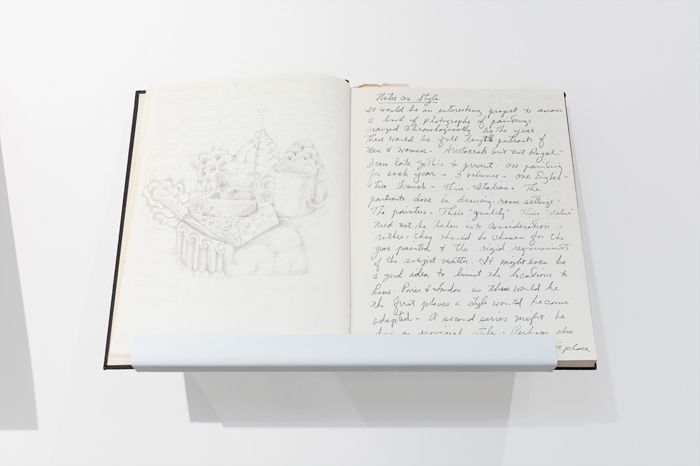 Notes on Style
It would be an interesting project to
a book of photographs of paintings
arranged chronologically by the year
There would be full length portraits of
Men & Women - Aristocratic but not Royal
from late Gothic to present. One painting
for each year - 3 volumes - one English -
two French - Three Italian. The
portraits done in drawing room settings.
The painters - Their "quality" Their "value"
need not be taken into consideration -
rather they should be chosen for the
year painted & the rigid requirements
of the subject matter. It might even be
a good idea to limit the locations to
Rome - Paris & London as these would be
the first places a style would become
adopted - A second series might be
style - Perhaps also
place